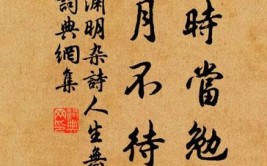 時當勉
月不待
淵明杂詩人生無
詞典網集